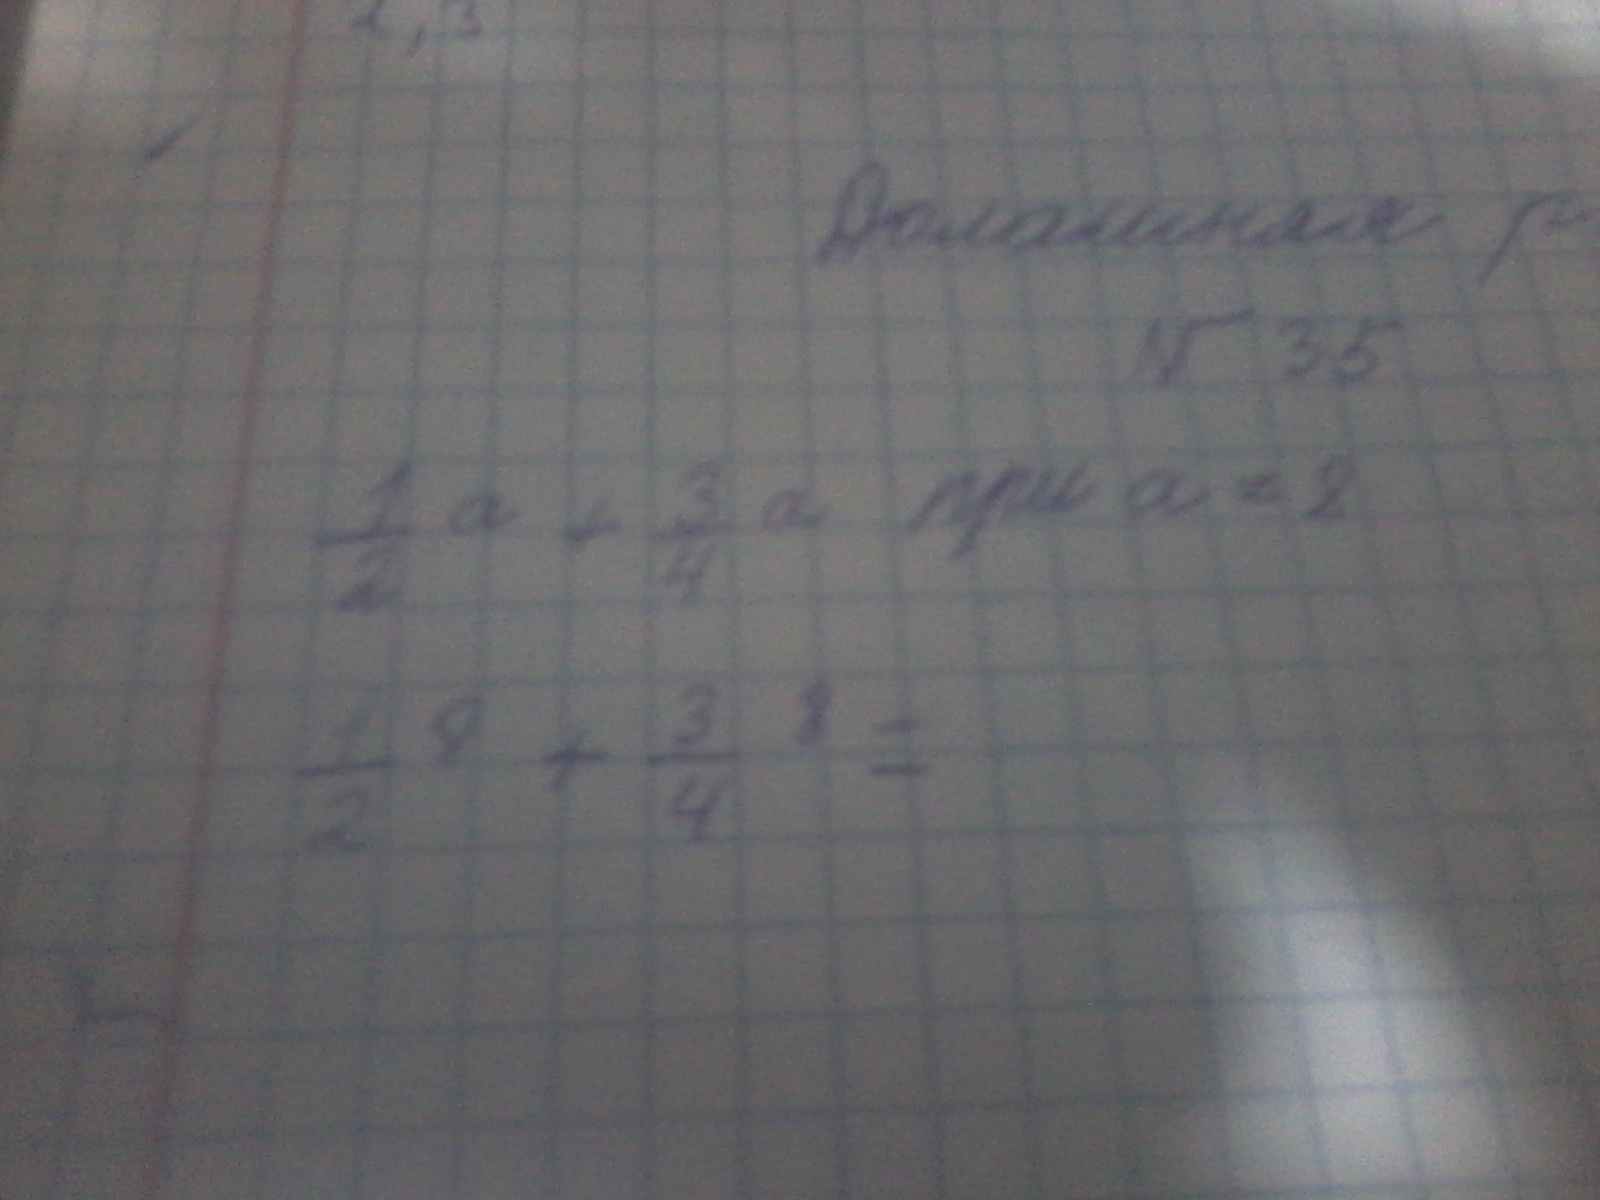 2,3
Домашняя р
№ 35
1/2 a + 3/4 a при a = 8
1/2 8 + 3/4 8 =